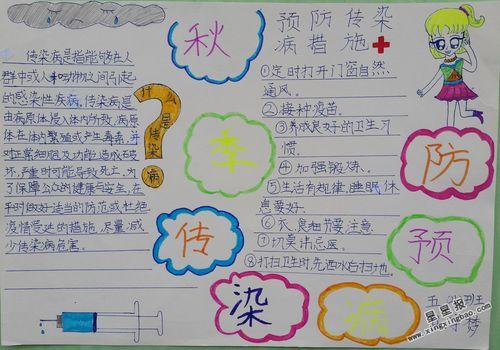 传染病是指能够在人
群中或人和动物之间引起
的感染性疾病,传染病是
由病原体侵入体内所致,病原
体在体内繁殖或产生毒素,并
对正常细胞及功能造成破
坏,严重时可能导致死亡,为
了保障公众的健康与安全,在
平时做好适当的防范或杜绝
疫情受达的措施,尽量减
少传染病危害。
什么是传染病
秋
季
传
染
病
预
防
预防传染
病措施
①定时打开门窗自然
通风。
②接种疫苗.
③养成良好的卫生习
惯.
④加强锻炼.
⑤生活有规律,睡眠休
息要好.
⑥衣、食细节要注意
⑦切莫讳忌医.
⑧打扫卫生时,先洒水后扫地.
五
班
梦
星星报
www.xingxingbao.com